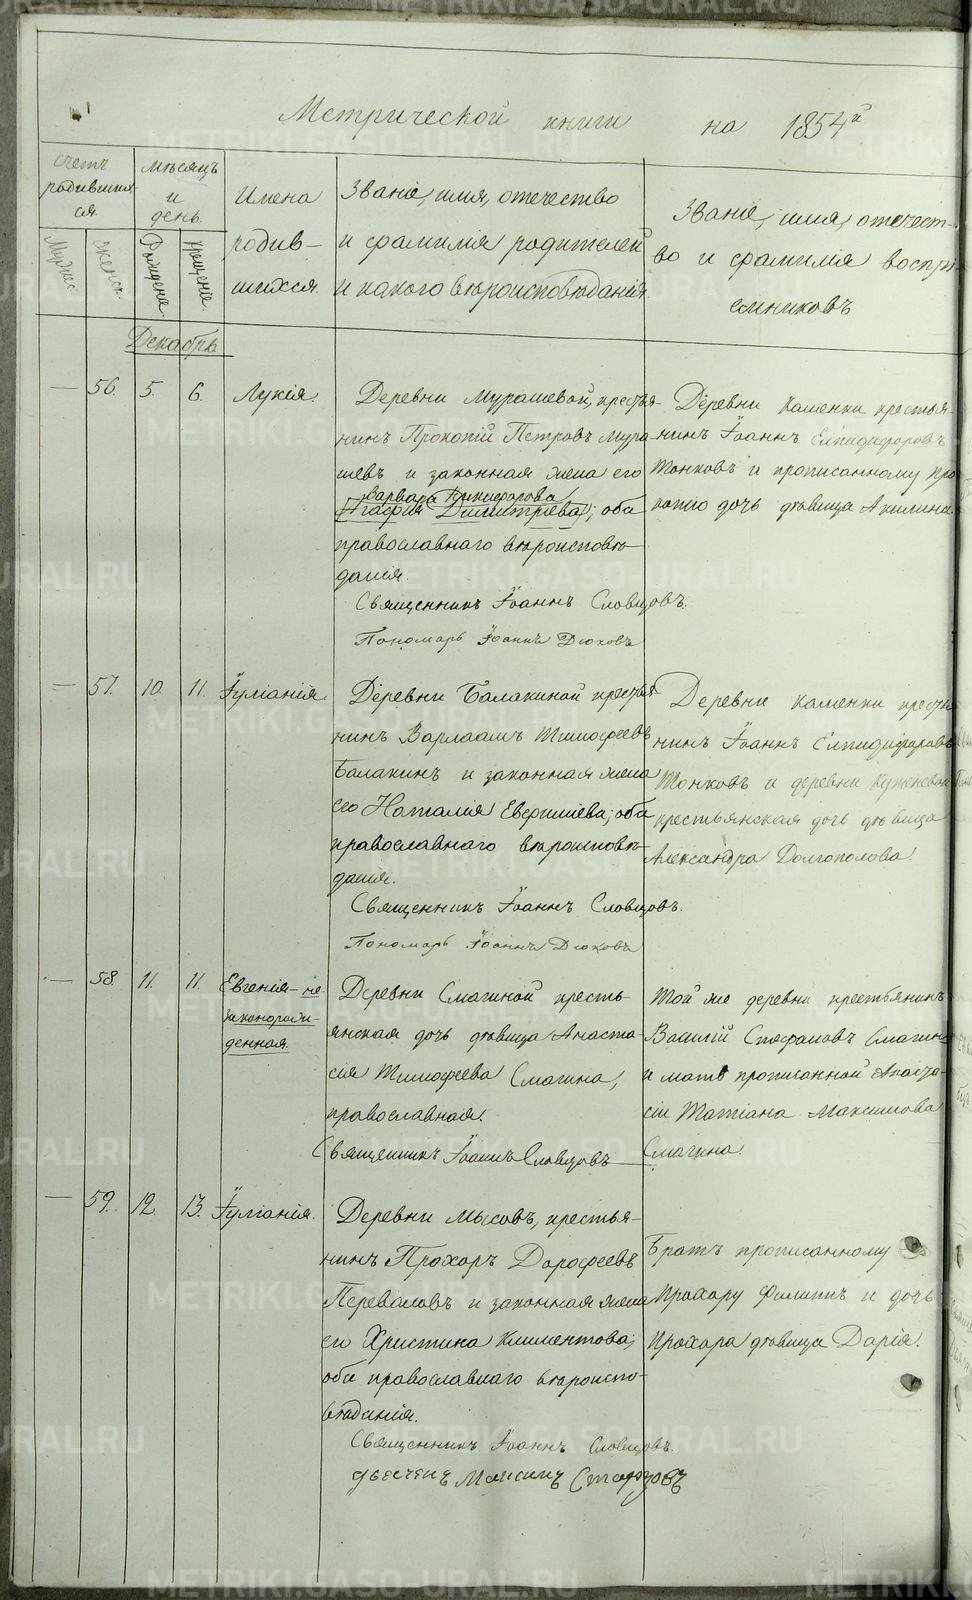 Метрической книги на 1854й
счетъ родившихся.
Мѣсяцъ и день.
Имена родившихся.
Званіе, имя, отечество и фамилія родителей и какого вѣроисповѣданія.
Званіе, имя, отечество и фамилія воспріемниковъ
Мужес.
женск.
Рожденія.
крещенія.
Декабрь
— 56. 5. 6. Лукія.
Деревни Мурашевой, крестья-
нинъ Прокопій Петровъ Мура-
шевъ и законная жена его
Варвара Никифорова
(Агафія Димитріева); оба
православнаго вѣроисповѣ-
данія.
Священникъ Іоаннъ Словцовъ.
Пономарь Іоаннъ Дюковъ
Деревни Каменки крестья-
нинъ Іоаннъ Елпидифоровъ
Тонковъ и прописанному Про-
копію дочь дѣвица Акилина.
— 57. 10. 11. Іуліанія.
Деревни Балакиной крестья
нинъ Варлаамъ Тимофеевъ
Балакинъ и законная жена
его Наталія Евфиміева; оба
православнаго вѣроисповѣ-
данія.
Священникъ Іоаннъ Словцовъ.
Пономарь Іоаннъ Дюковъ
Деревни Каменки крестья
нинъ Іоаннъ Елпидифоровъ
Тонковъ и деревни
крестьянская дочь дѣвица
Александра Долгополова.
— 58. 11. 11. Евгенія – не-
законорож-
денная.
Деревни Смагиной кресть-
янская дочь дѣвица Анаста-
сія Тимофеева Смагина,
православная.
Священникъ Іоаннъ Словцовъ
Той же деревни крестьянинъ
Василій Стефановъ Смагинъ
и мать прописанной Анаста-
сіи Татіана Максимова
Смагина.
— 59. 12. 13. Іуліанія.
Деревни Мысовъ, крестья-
нинъ Прохоръ Дорофеевъ
Переваловъ и законная жена
его Христина Климентова,
оба православнаго вѣроиспо-
вѣданія.
Священникъ Іоаннъ Словцовъ.
Максимъ Старцовъ
Братъ прописанному
Прохору Филиппъ и дочь
Прохора дѣвица Дарія.
METRIKI.GASO-URAL.RU